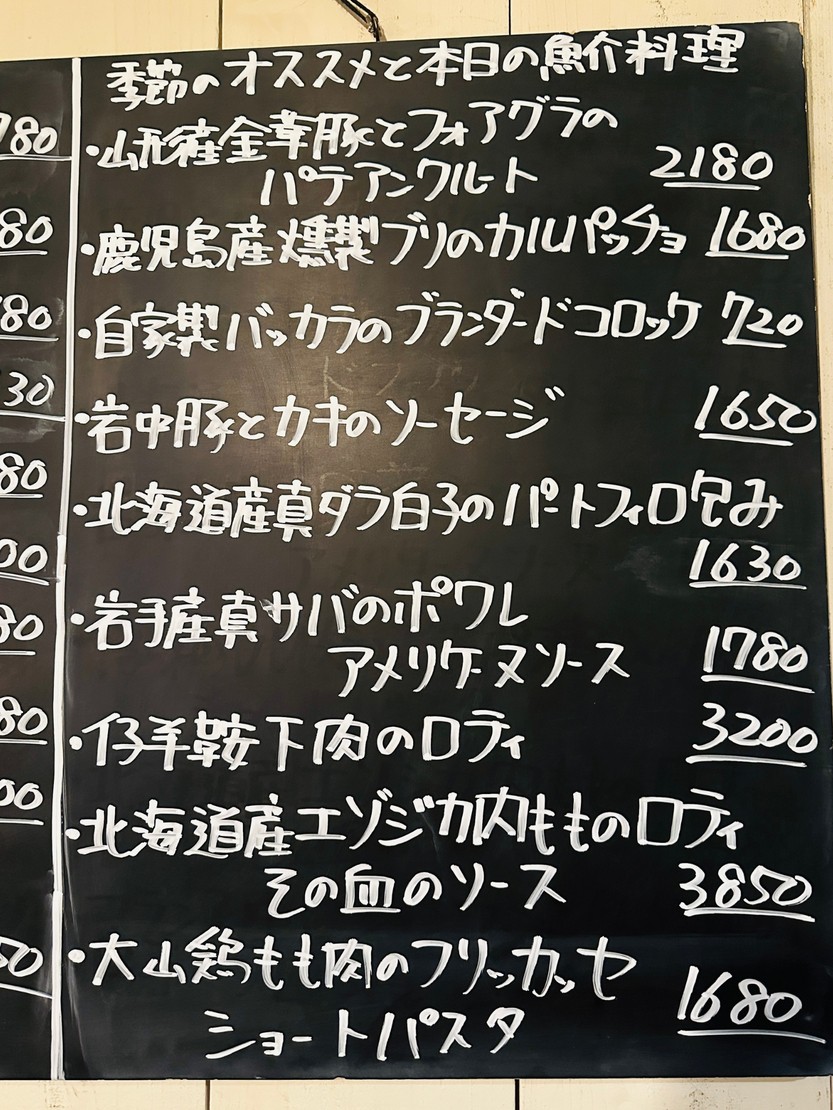 季節のオススメと本日の魚介料理
・山形産金華豚とフォアグラの
パテアンクルート 2180
・鹿児島産燻製ブリのカルパッチョ 1680
・自家製バッカラのブランダードコロッケ 720
・岩中豚とカキのソーセージ 1650
・北海道産真ダラ白子のパートフィロ包み
1630
・岩手産真サバのポワレ
アメリケーヌソース 1780
・仔羊鞍下肉のロティ 3200
・北海道産エゾジカ内もものロティ
その血のソース 3850
・大山鶏もも肉のフリッカッセ
ショートパスタ 1680
780
80
80
30
80
00
80
80
00
50